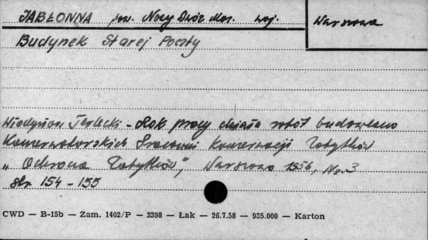 JABŁONNA pow. Nowy Dwór Maz. woj. Warszawa
Budynek Starej Poczty
Władysław Terlecki - Rok pracy działu robót budowlano
Konserwatorskich Pracowni Konserwacji Zabytków
„Ochrona Zabytków", Warszawa 1956, Nr. 3
str. 154 - 155
CWD — B-15b — Zam. 1402/P — 2398 — Łak — 26.7.58 — 935.000 — Karton